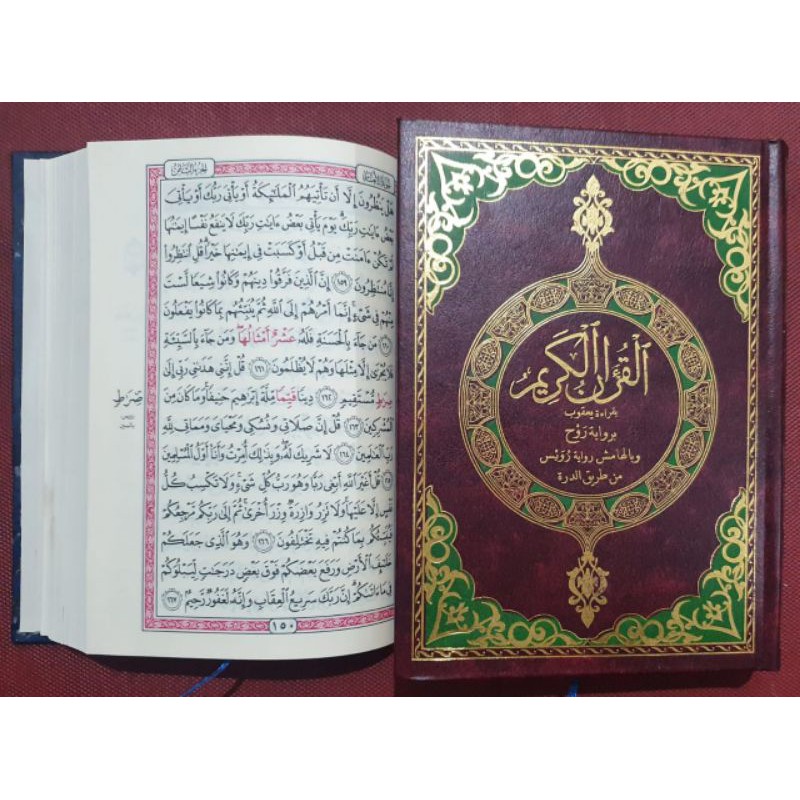 الجزء الثامن
هَلْ يَنظُرُونَ إِلَّا أَن تَأْتِيَهُمُ الْمَلَٰٓئِكَةُ أَوْ يَأْتِيَ رَبُّكَ أَوْ يَأْتِيَ
بَعْضُ ءَايَٰتِ رَبِّكَ يَوْمَ يَأْتِي بَعْضُ ءَايَٰتِ رَبِّكَ لَا يَنفَعُ نَفْسًا إِيمَٰنُهَا
لَمْ تَكُنْ ءَامَنَتْ مِن قَبْلُ أَوْ كَسَبَتْ فِي إِيمَٰنِهَا خَيْرًا قُلِ انتَظِرُوا
إِنَّا مُنتَظِرُونَ ١٥٩ إِنَّ الَّذِينَ فَرَّقُوا دِينَهُمْ وَكَانُوا شِيَعًا لَّسْتَ
مِنْهُمْ فِي شَيْءٍ إِنَّمَا أَمْرُهُمْ إِلَى اللَّهِ ثُمَّ يُنَبِّئُهُم بِمَا كَانُوا يَفْعَلُونَ
١٦٠ مَن جَآءَ بِالْحَسَنَةِ فَلَهُ عَشْرٌ أَمْثَالُهَا وَمَن جَآءَ بِالسَّيِّئَةِ
فَلَا يُجْزَىٰ إِلَّا مِثْلَهَا وَهُمْ لَا يُظْلَمُونَ ١٦١ قُلْ إِنَّنِي هَدَىٰنِي رَبِّي إِلَىٰ
صِرَٰطٍ مُّسْتَقِيمٍ ١٦٢ دِينًا قَيِّمًا مِّلَّةَ إِبْرَٰهِيمَ حَنِيفًا وَمَا كَانَ مِنَ
الْمُشْرِكِينَ ١٦٣ قُلْ إِنَّ صَلَاتِي وَنُسُكِي وَمَحْيَايَ وَمَمَاتِي لِلَّهِ
رَبِّ الْعَٰلَمِينَ ١٦٤ لَا شَرِيكَ لَهُ وَبِذَٰلِكَ أُمِرْتُ وَأَنَا أَوَّلُ الْمُسْلِمِينَ
١٦٥ قُلْ أَغَيْرَ اللَّهِ أَبْغِي رَبًّا وَهُوَ رَبُّ كُلِّ شَيْءٍ وَلَا تَكْسِبُ كُلُّ
نَفْسٍ إِلَّا عَلَيْهَا وَلَا تَزِرُ وَازِرَةٌ وِزْرَ أُخْرَىٰ ثُمَّ إِلَىٰ رَبِّكُم مَّرْجِعُكُمْ
فَيُنَبِّئُكُم بِمَا كُنتُمْ فِيهِ تَخْتَلِفُونَ ١٦٦ وَهُوَ الَّذِي جَعَلَكُمْ
خَلَٰٓئِفَ الْأَرْضِ وَرَفَعَ بَعْضَكُمْ فَوْقَ بَعْضٍ دَرَجَٰتٍ لِّيَبْلُوَكُمْ
فِي مَآ ءَاتَىٰكُمْ إِنَّ رَبَّكَ سَرِيعُ الْعِقَابِ وَإِنَّهُ لَغَفُورٌ رَّحِيمٌ ١٦٧
١٥٠
صِرَٰطٍ
رويس
بالسين
الْقُرْءَانُ الْكَرِيمُ
بقراءة يعقوب
برواية رَوْح
وبالهامش رواية رُوَيْس
من طريق الدرة